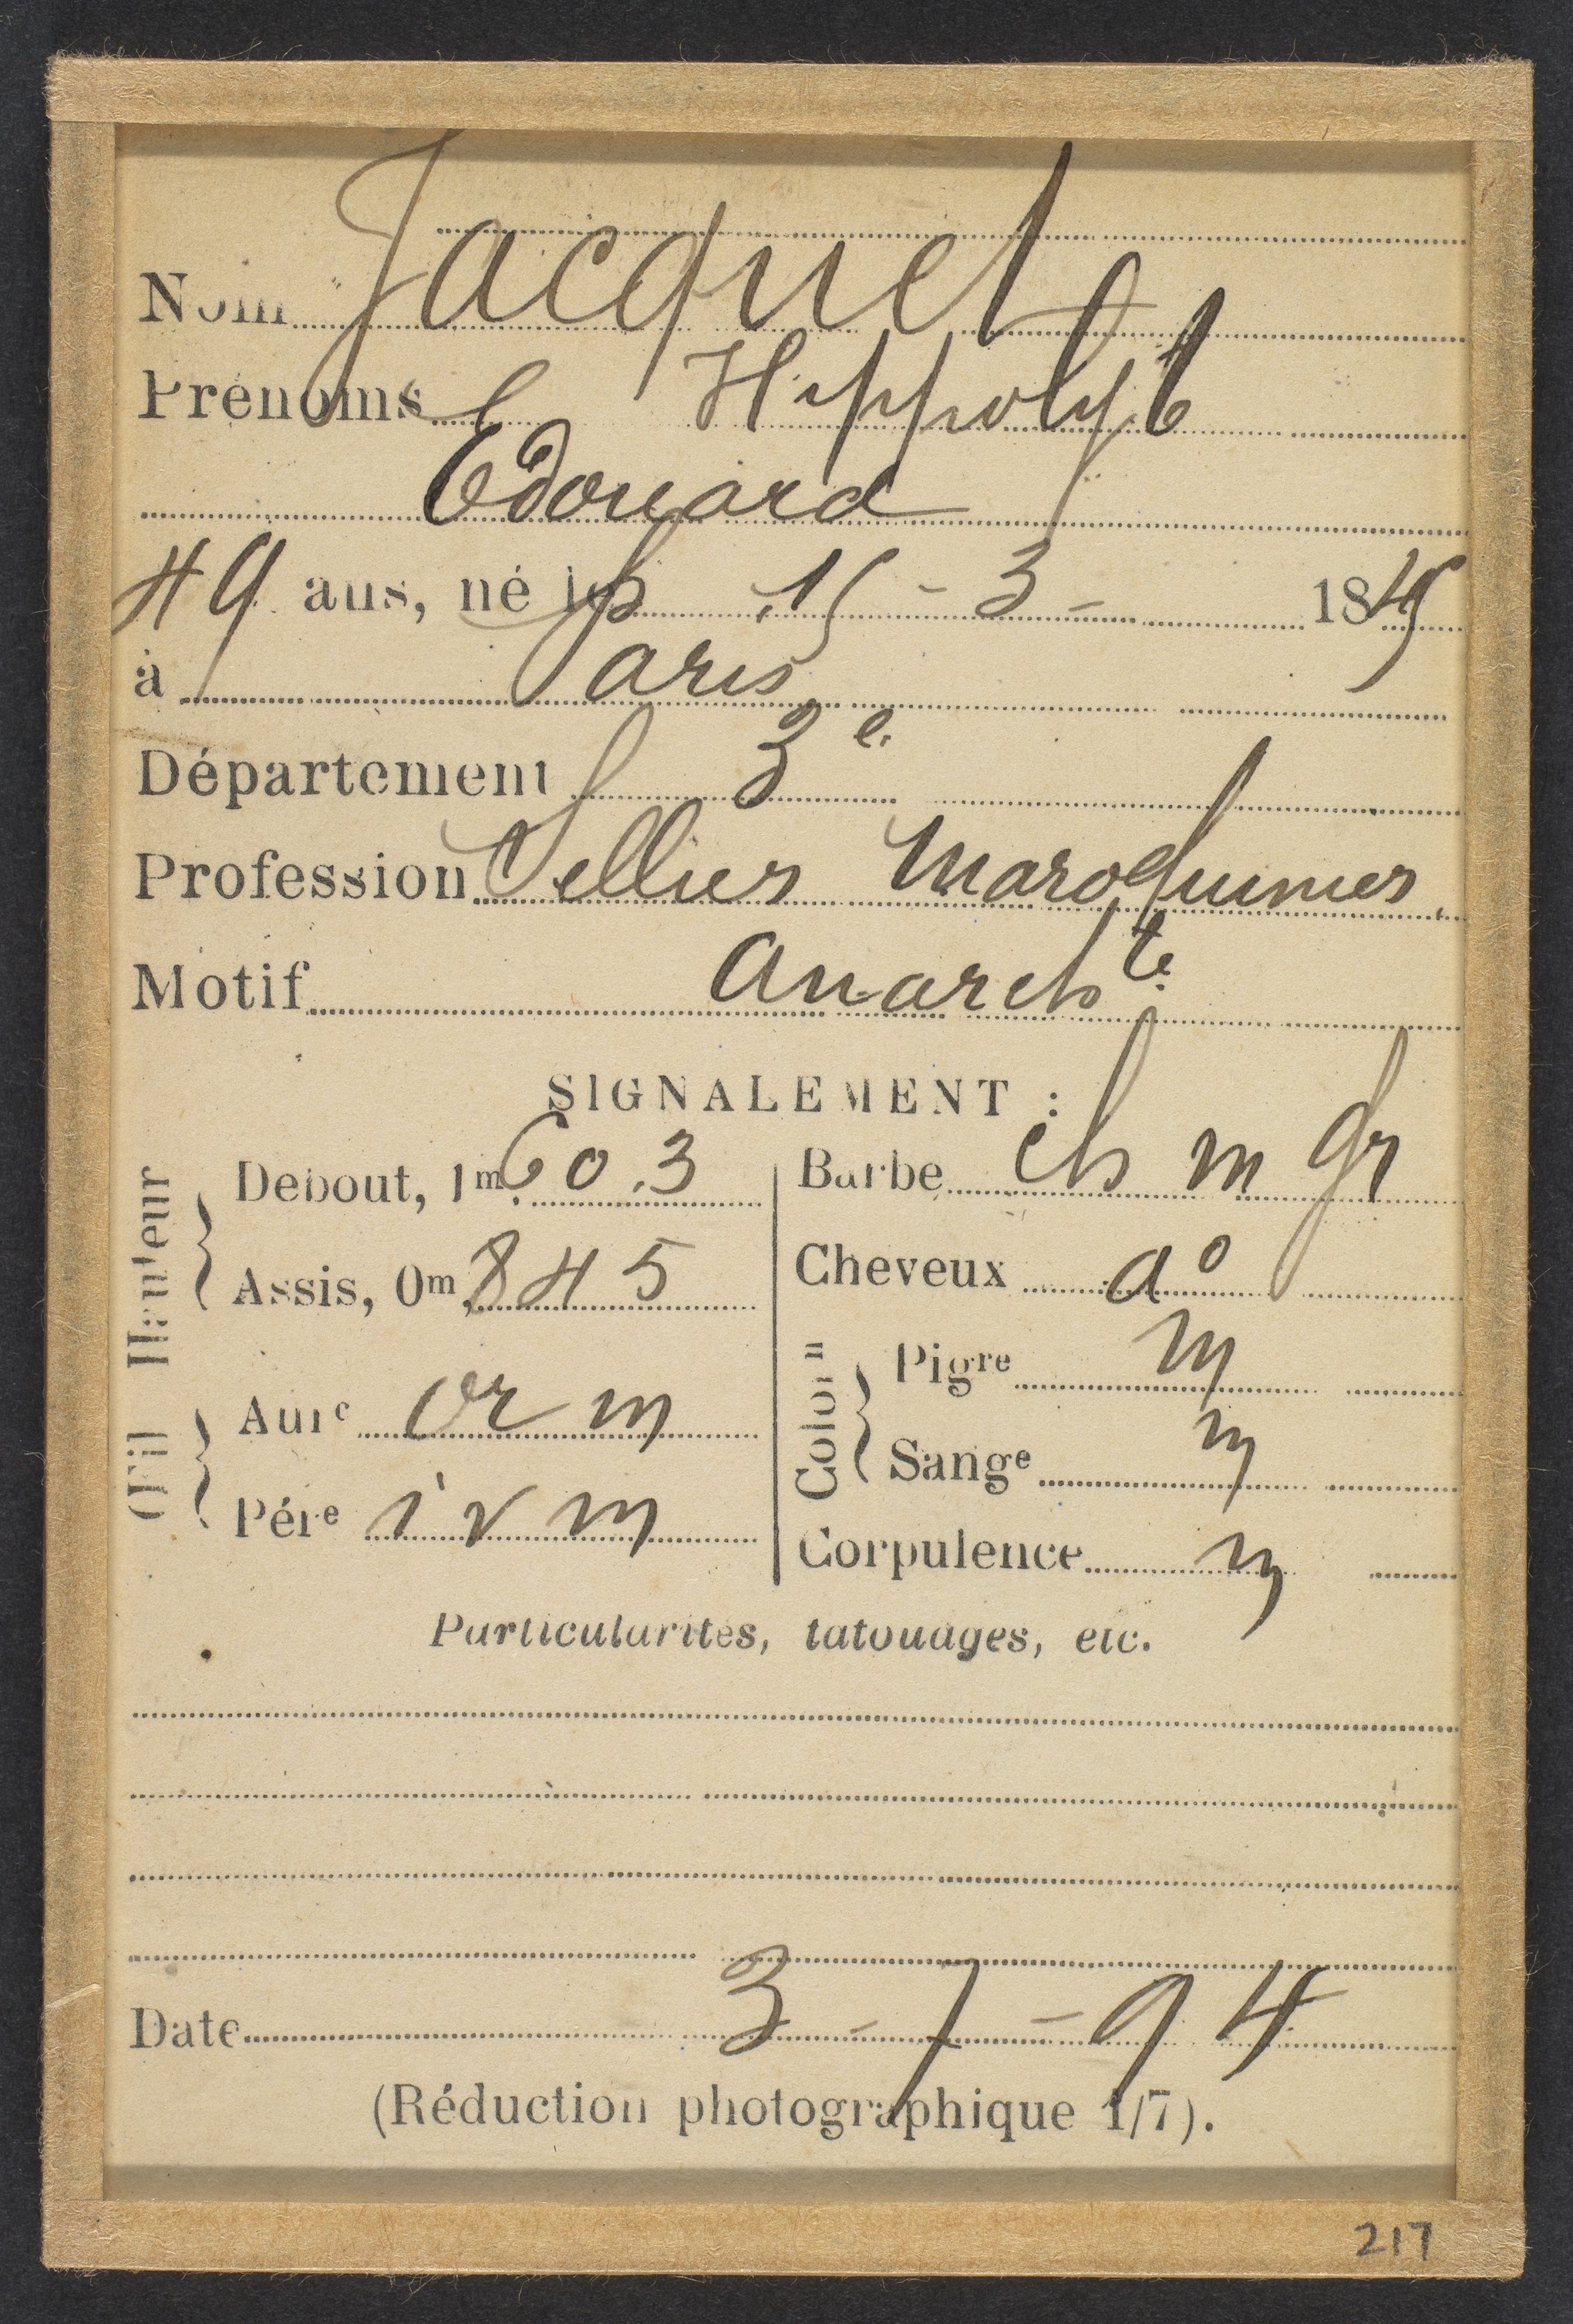 Nom Jacquet
Prénoms Hippolyte
Edouard
49 ans, né le 15 - 3 - 1845
à Paris
Département 3e
Profession Sellier Maroquinier
Motif Anarchte
SIGNALEMENT :
Hauteur
Debout, 1m, 60.3
Assis, 0m, 845
Œil
Aure or m
Père i v m
Barbe ch m gr
Cheveux do
Color n
Pigre m
Sange m
Corpulence m
Particularités, tatouages, etc.
Date 3 - 7 - 94
(Réduction photographique 1/7).
217